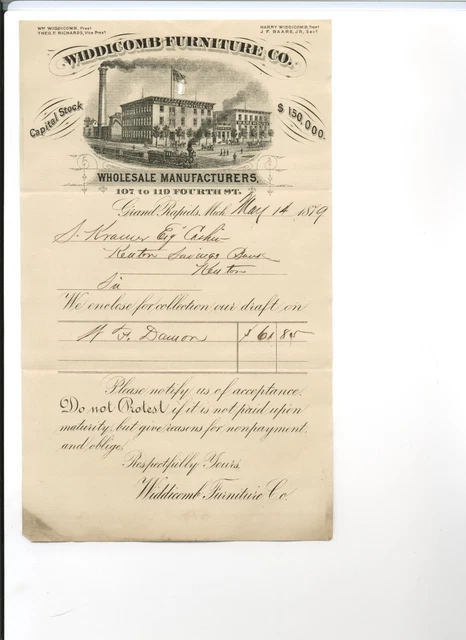 WM WIDDICOMB, Prest
HARRY WIDDICOMB, Treas
THEO. F. RICHARDS, Vice Prest
J. F. BAARS, JR, Sect
WIDDICOMB FURNITURE CO.
Capital Stock
$150,000.
WHOLESALE MANUFACTURERS,
107 to 119 FOURTH ST.
Grand Rapids, Mich. May 14 1879
S. Kramer Esq Cashier
Kenton Savings Bank
Kenton
Sir
We enclose for collection our draft on
W F. Damon $ 61 85
Please notify us of acceptance.
Do not Protest if it is not paid upon
maturity, but give reasons for nonpayment,
and oblige,
Respectfully Yours,
Widdicomb Furniture Co.